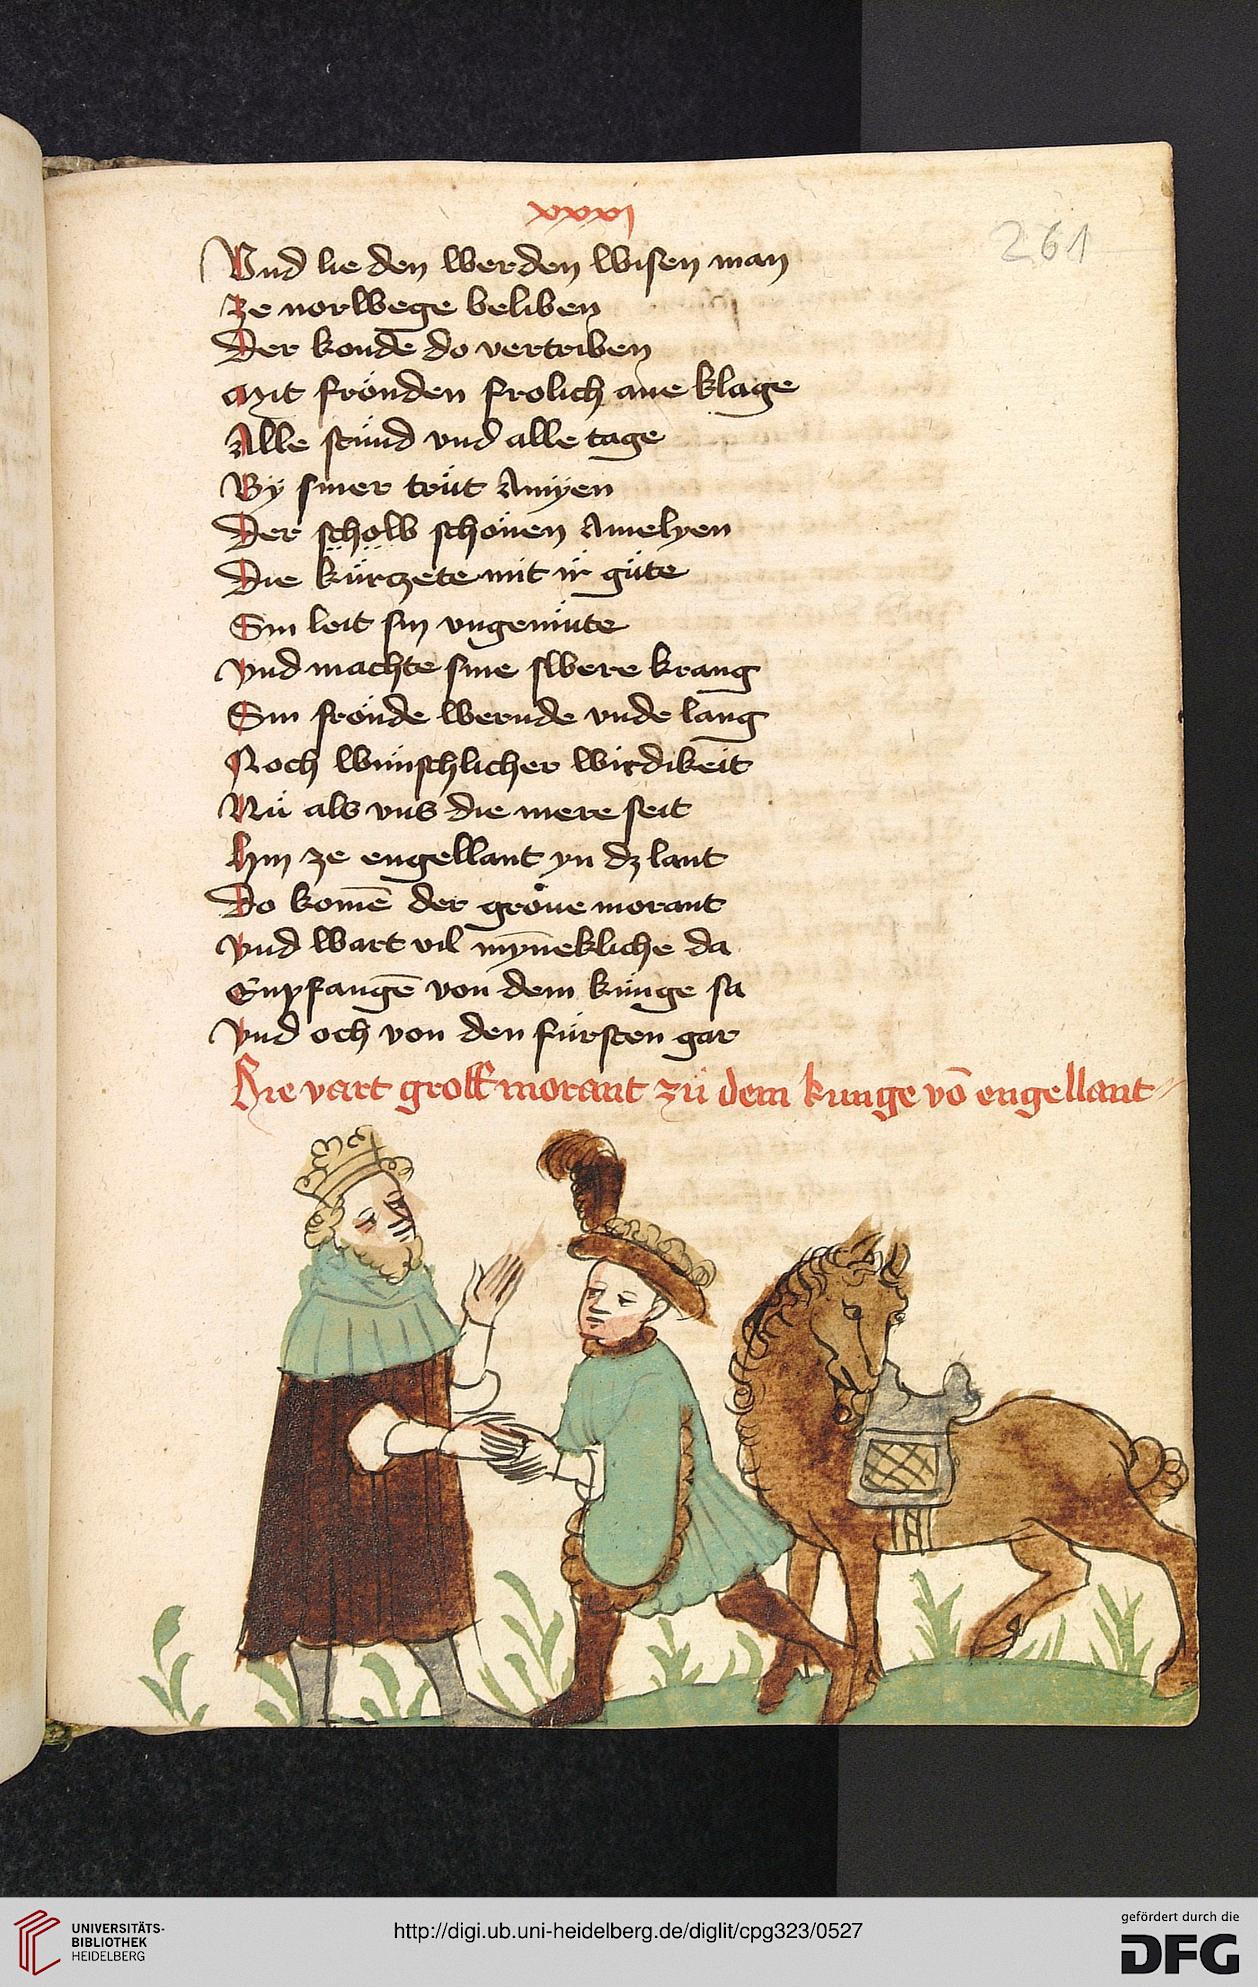 xxxj
261
Vnd lie den werden wisen man
Ze norwege beliben
Der konde do vertriben
Mit fröuden frolich ane klage
Alle stünd vnd alle tage
By siner trüt Amÿen
Der scholb schönen Amelyen
Die kürczete mit ir güte
Sin leit sin vngemüte
Vnd machte sine swere krang
Sin fröude wernde vnde lang
Noch wünschlicher wirdikeit
Nü als vns die mere seit
Hin ze engellant yn dz lant
Do komē der gröue morant
Vnd wart vil mȳnekliche da
Enpfangē von dem künge sa
Vnd och von den fürsten gar
Hie vart groff morant zü dem kunge vō engellant
UNIVERSITÄTS-
BIBLIOTHEK
HEIDELBERG
http://digi.ub.uni-heidelberg.de/diglit/cpg323/0527
gefördert durch die
DFG